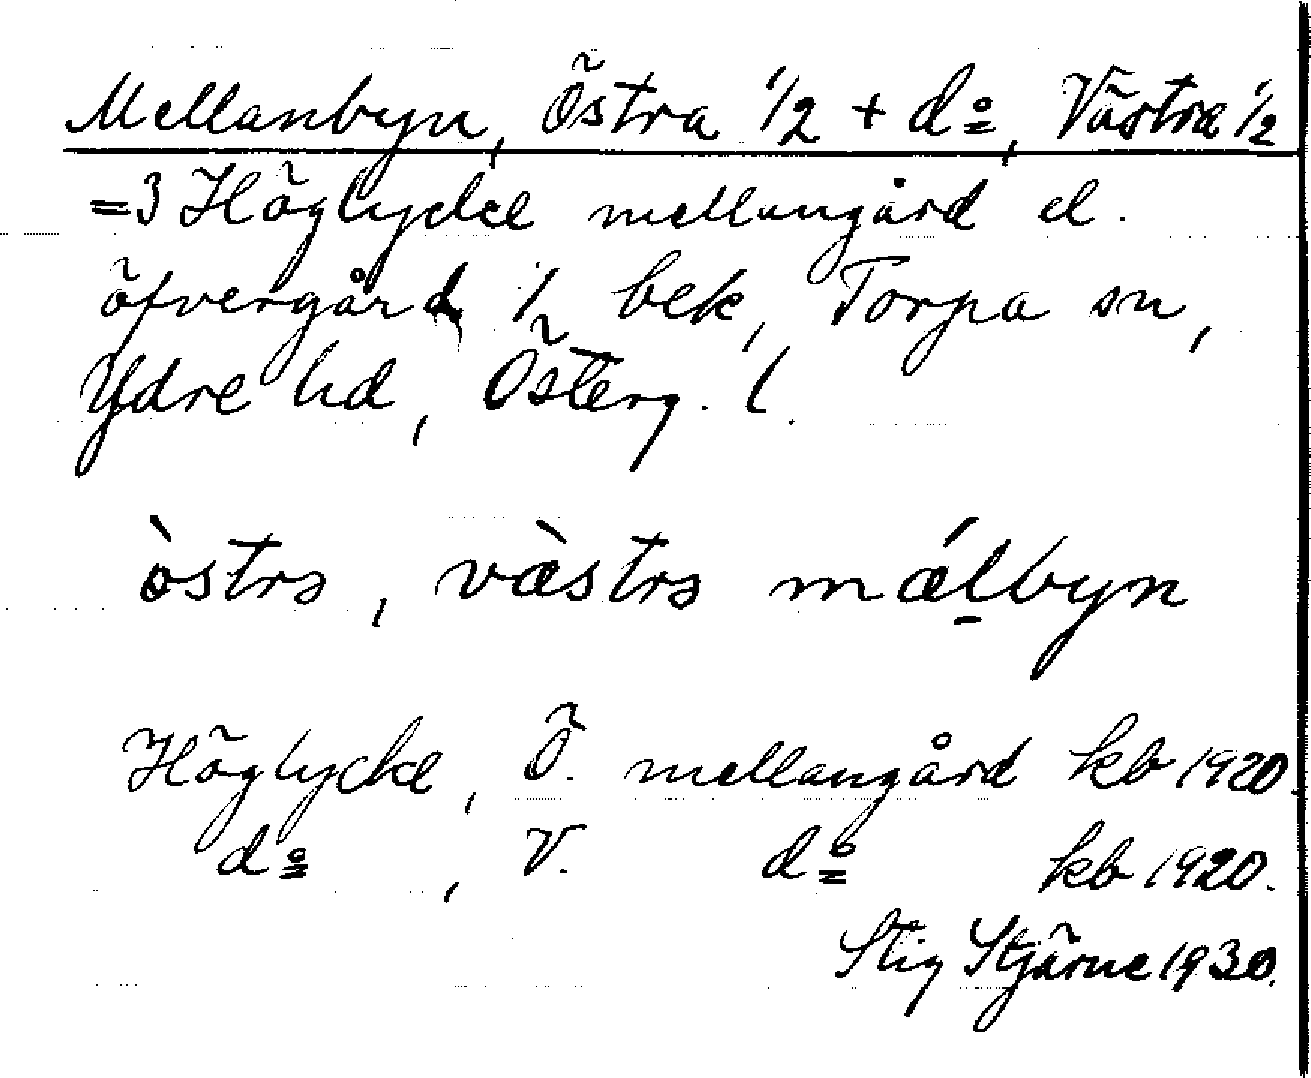 Mellanbyn, Östra 1/2 + do, Västra 1/2
=3 Höglycke mellangård el.
öfvergård, 1/1 bek, Torpa sn,
Ydre hd, Österg. l.
òstrə, vàstrə málbyn
Höglycke, Ö. mellangård kb 1920.
do, V. do kb 1920.
Stig Stjärne 1930.